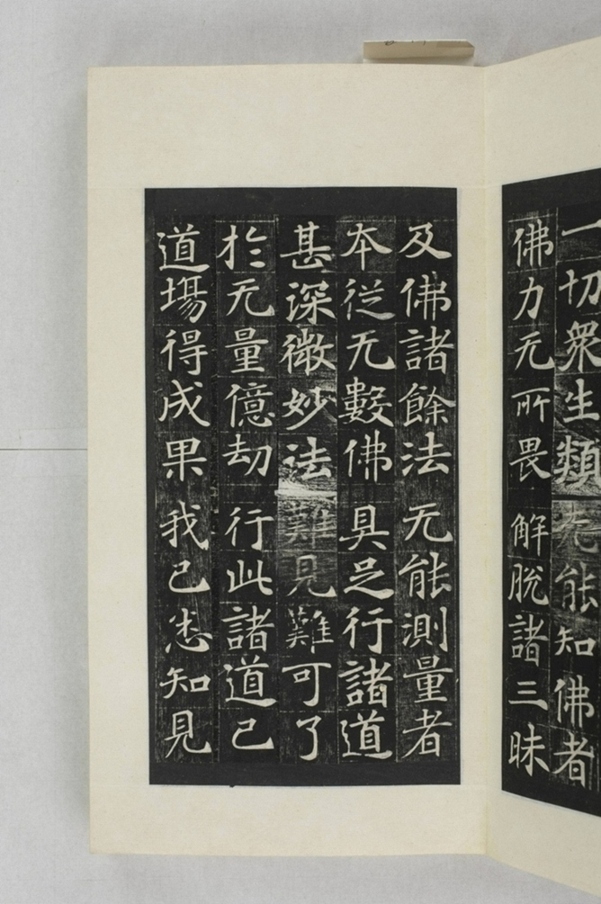 一切衆生類 无能知佛者
佛力无所畏 解脫諸三昧
及佛諸餘法 无能測量者
本從无數佛 具足行諸道
甚深微妙法 難見難可了
於无量億劫 行此諸道已
道場得成果 我已悉知見